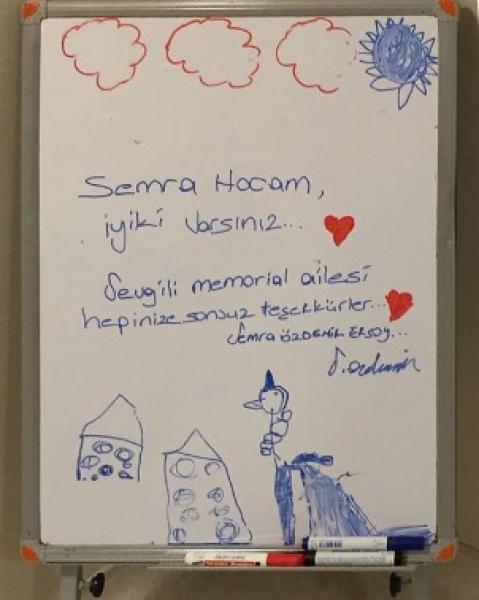 Semra Hocam,
iyiki varsınız...
Sevgili memorial ailesi
hepinize sonsuz teşekkürler...
Semra ÖZDEMİR ERSOY...
S. Özdemir